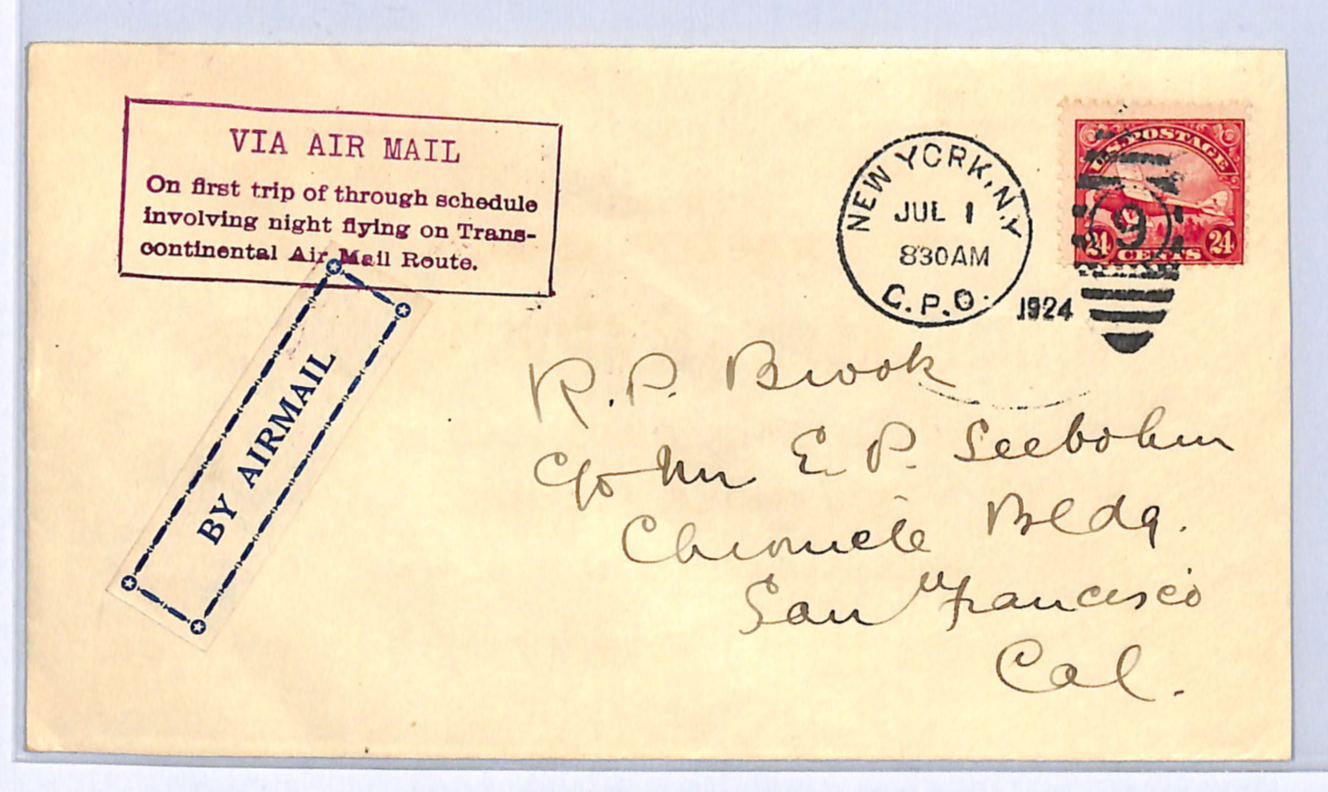 VIA AIR MAIL
On first trip of through schedule
involving night flying on Trans-
continental Air Mail Route.
BY AIRMAIL
NEW YORK, N.Y
JUL 1
830AM
G.P.O.
1924
9
U.S. POSTAGE
24 24
CENTS
R. P. Brook
c/o Mr E. P. Seebohm
Chronicle Bldg.
San Francisco
Cal.